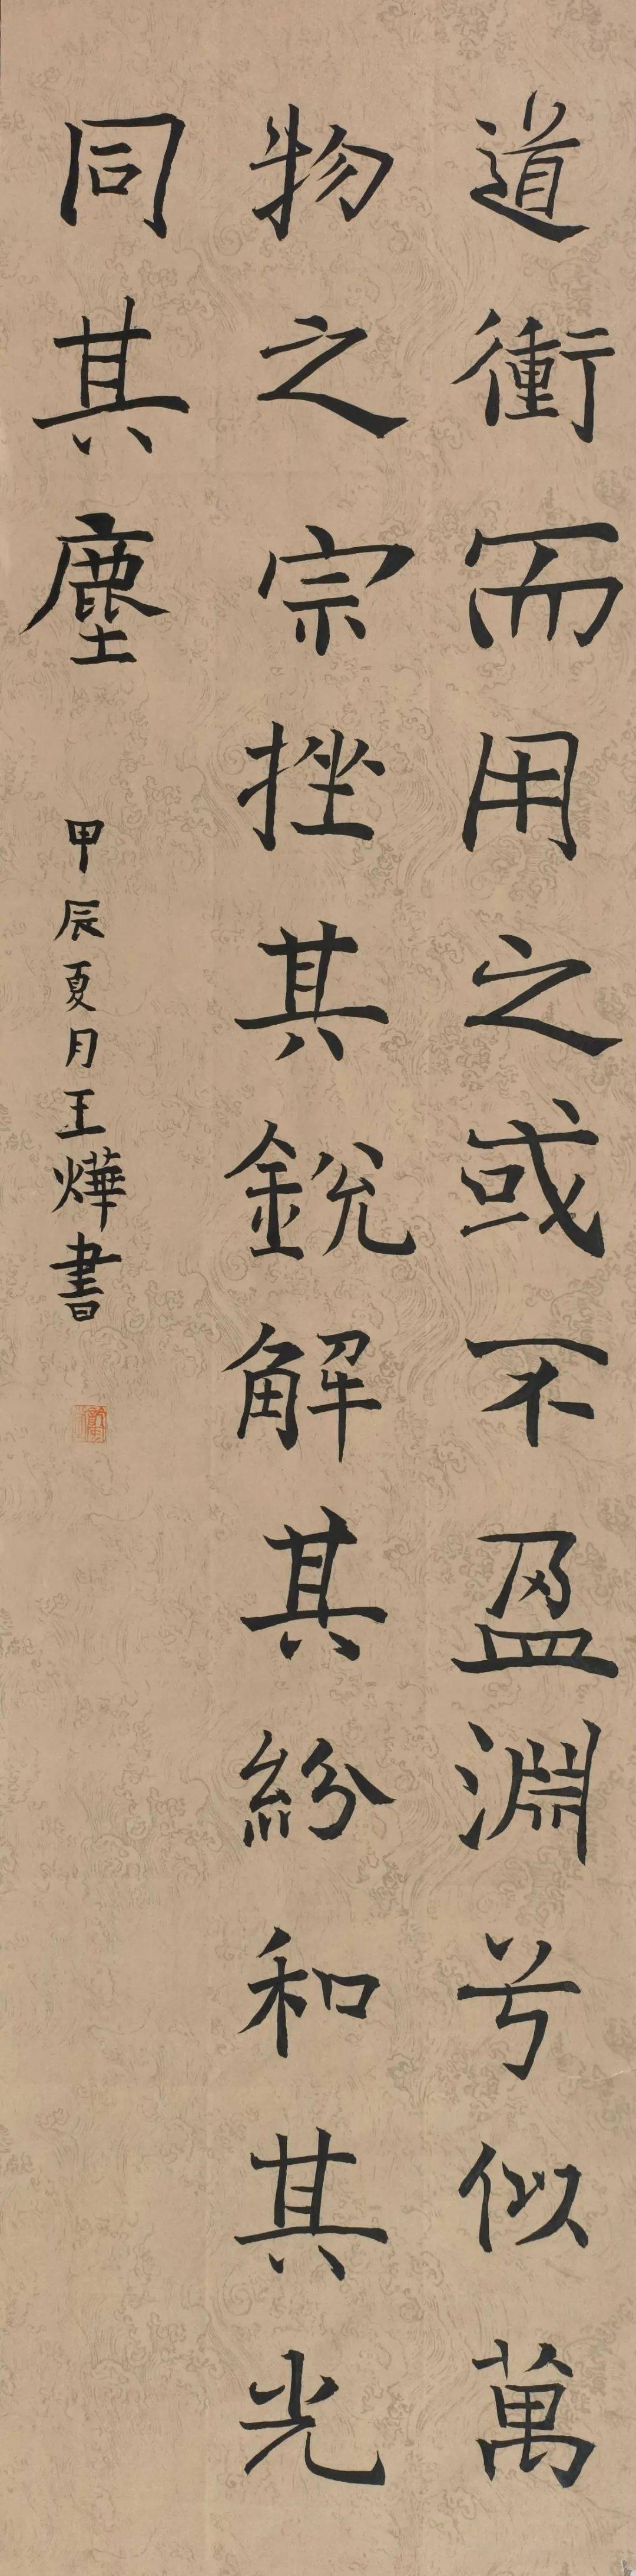 道衝而用之或不盈淵兮似萬
物之宗挫其銳解其紛和其光
同其塵
甲辰夏月王燁書